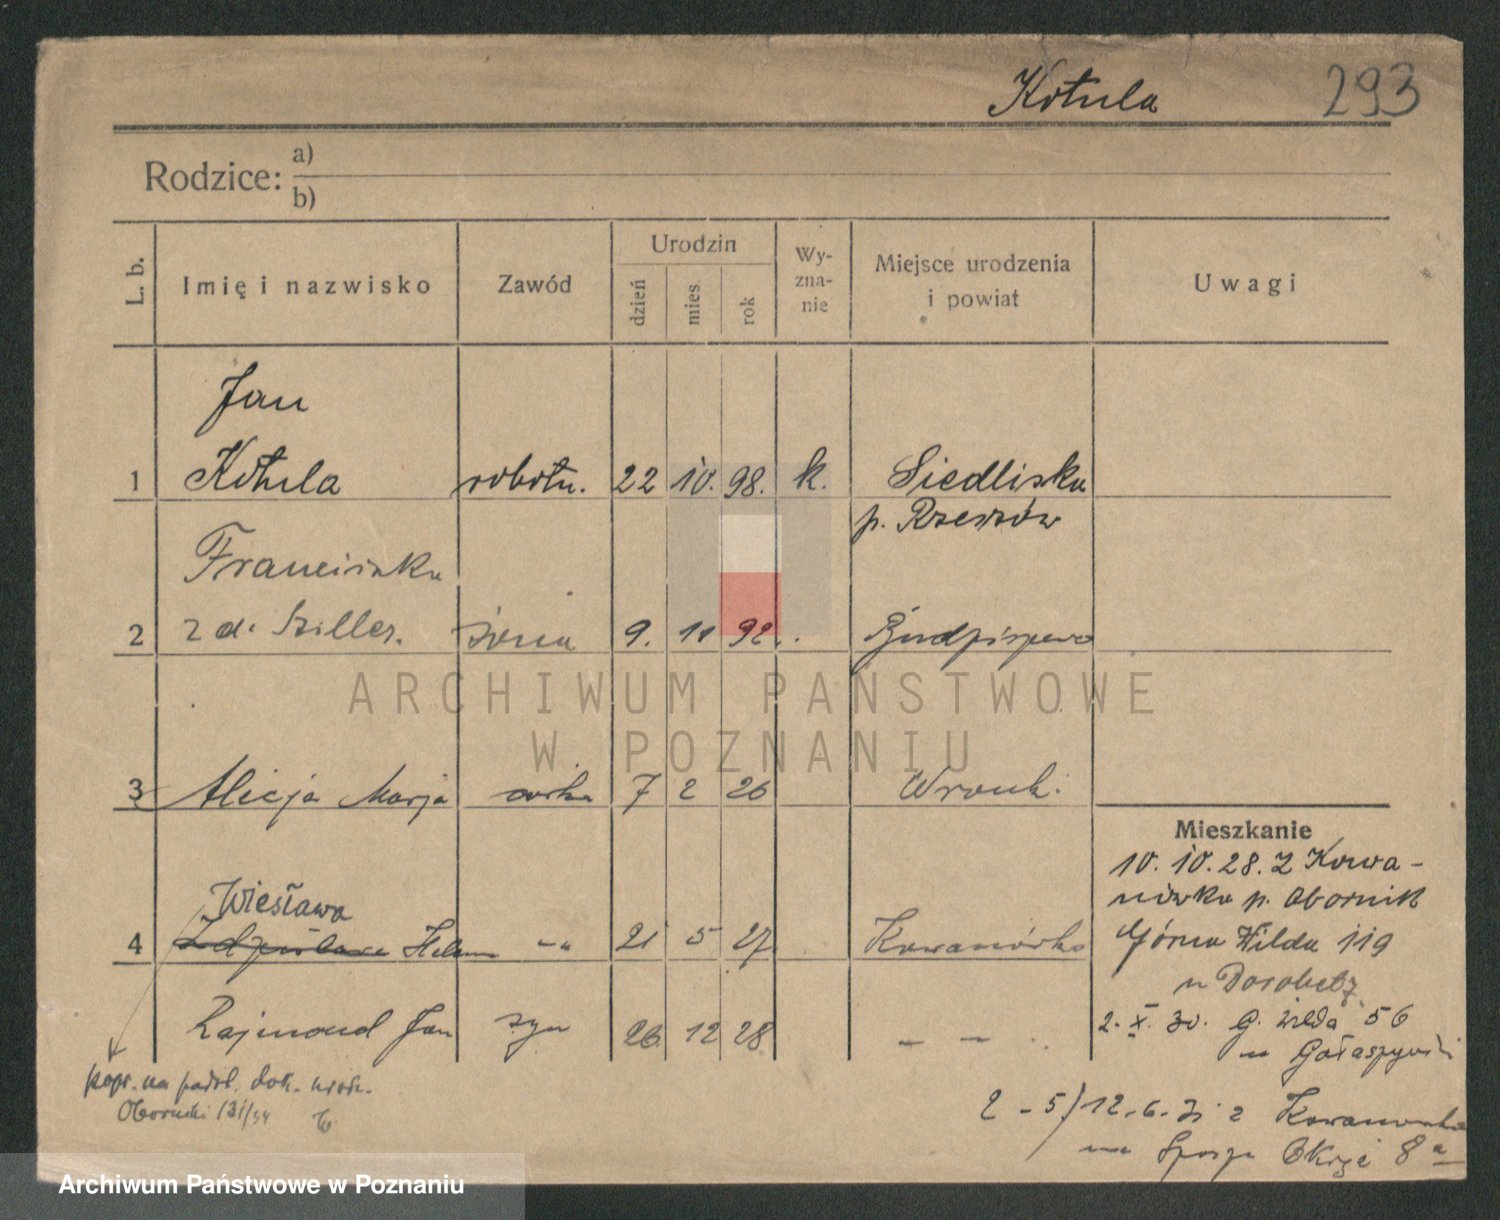 Kotula 293
Rodzice: a)
b)
L. b. Imię i nazwisko Zawód Urodzin dzień mies. rok Wy-zna-nie Miejsce urodzenia i powiat Uwagi
Jan
1 Kotula robotn. 22 10. 98. k. Siedliska
p. Rzeszów
Franciszka
2 z d. Sziller. żona 9. 11 92. Budpiszewo
ARCHIWUM PAŃSTWOWE
W POZNANIU
3 Alicja Marja córka 7 2 26 Wronki.
Mieszkanie
10. 10. 28. z Kowa-
nówka p. Obornik
Wiesława
4 Helena -"- 21 5 27 Kowanówko
Górna Wilda 119
u
Rajmund Jan syn 26 12 28 - -
2. X. 30. G. Wilda 56
u
popr. na podst. dok. urodz.
Obornicki 131/34
2-5/12.6.31 z Kowanówka
na 8a
Archiwum Państwowe w Poznaniu